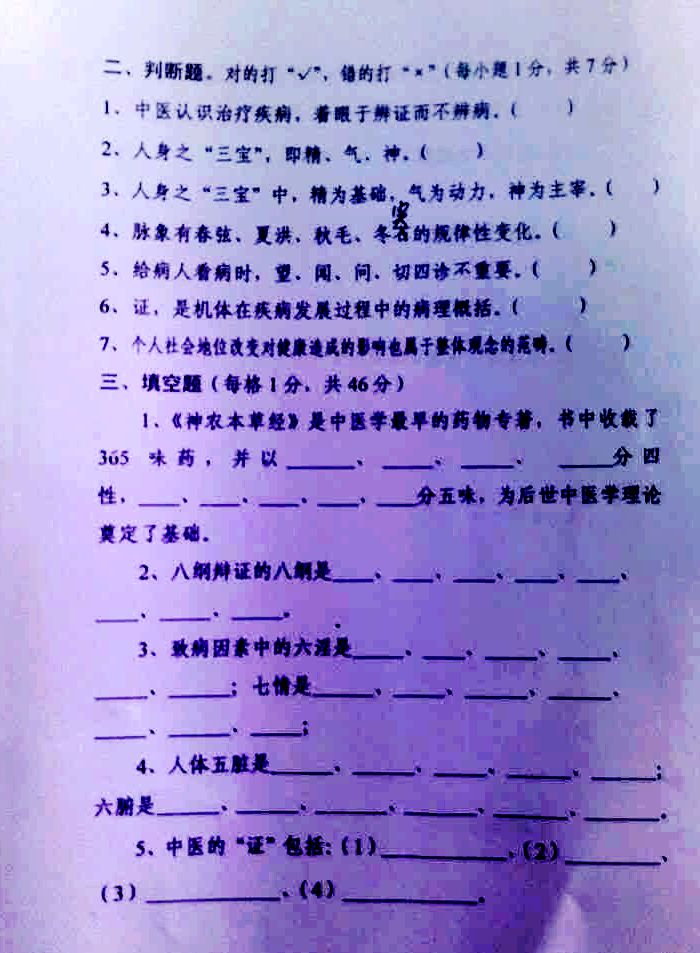 二、判断题。对的打“√”，错的打“×”（每小题1分，共7分）
1、中医认识治疗疾病，着眼于辨证而不辨病。（　　）
2、人身之“三宝”，即精、气、神。（　　）
3、人身之“三宝”中，精为基础，气为动力，神为主宰。（　　）
4、脉象有春弦、夏洪、秋毛、冬石的规律性变化。（　　）
5、给病人看病时，望、闻、问、切四诊不重要。（　　）
6、证，是机体在疾病发展过程中的病理概括。（　　）
7、个人社会地位改变对健康造成的影响也属于整体观念的范畴。（　　）
三、填空题（每格1分，共46分）
1、《神农本草经》是中医学最早的药物专著，书中收载了
365 味药，并以____、____、____、____分四
性，____、____、____、____、____分五味，为后世中医学理论
奠定了基础。
2、八纲辩证的八纲是____、____、____、____、____、
____、____、____。
3、致病因素中的六淫是____、____、____、____、
____、____；七情是____、____、____、____、
____、____、____；
4、人体五脏是____、____、____、____、____；
六腑是____、____、____、____、____、____。
5、中医的“证”包括：（1）________、（2）________、
（3）________、（4）________。